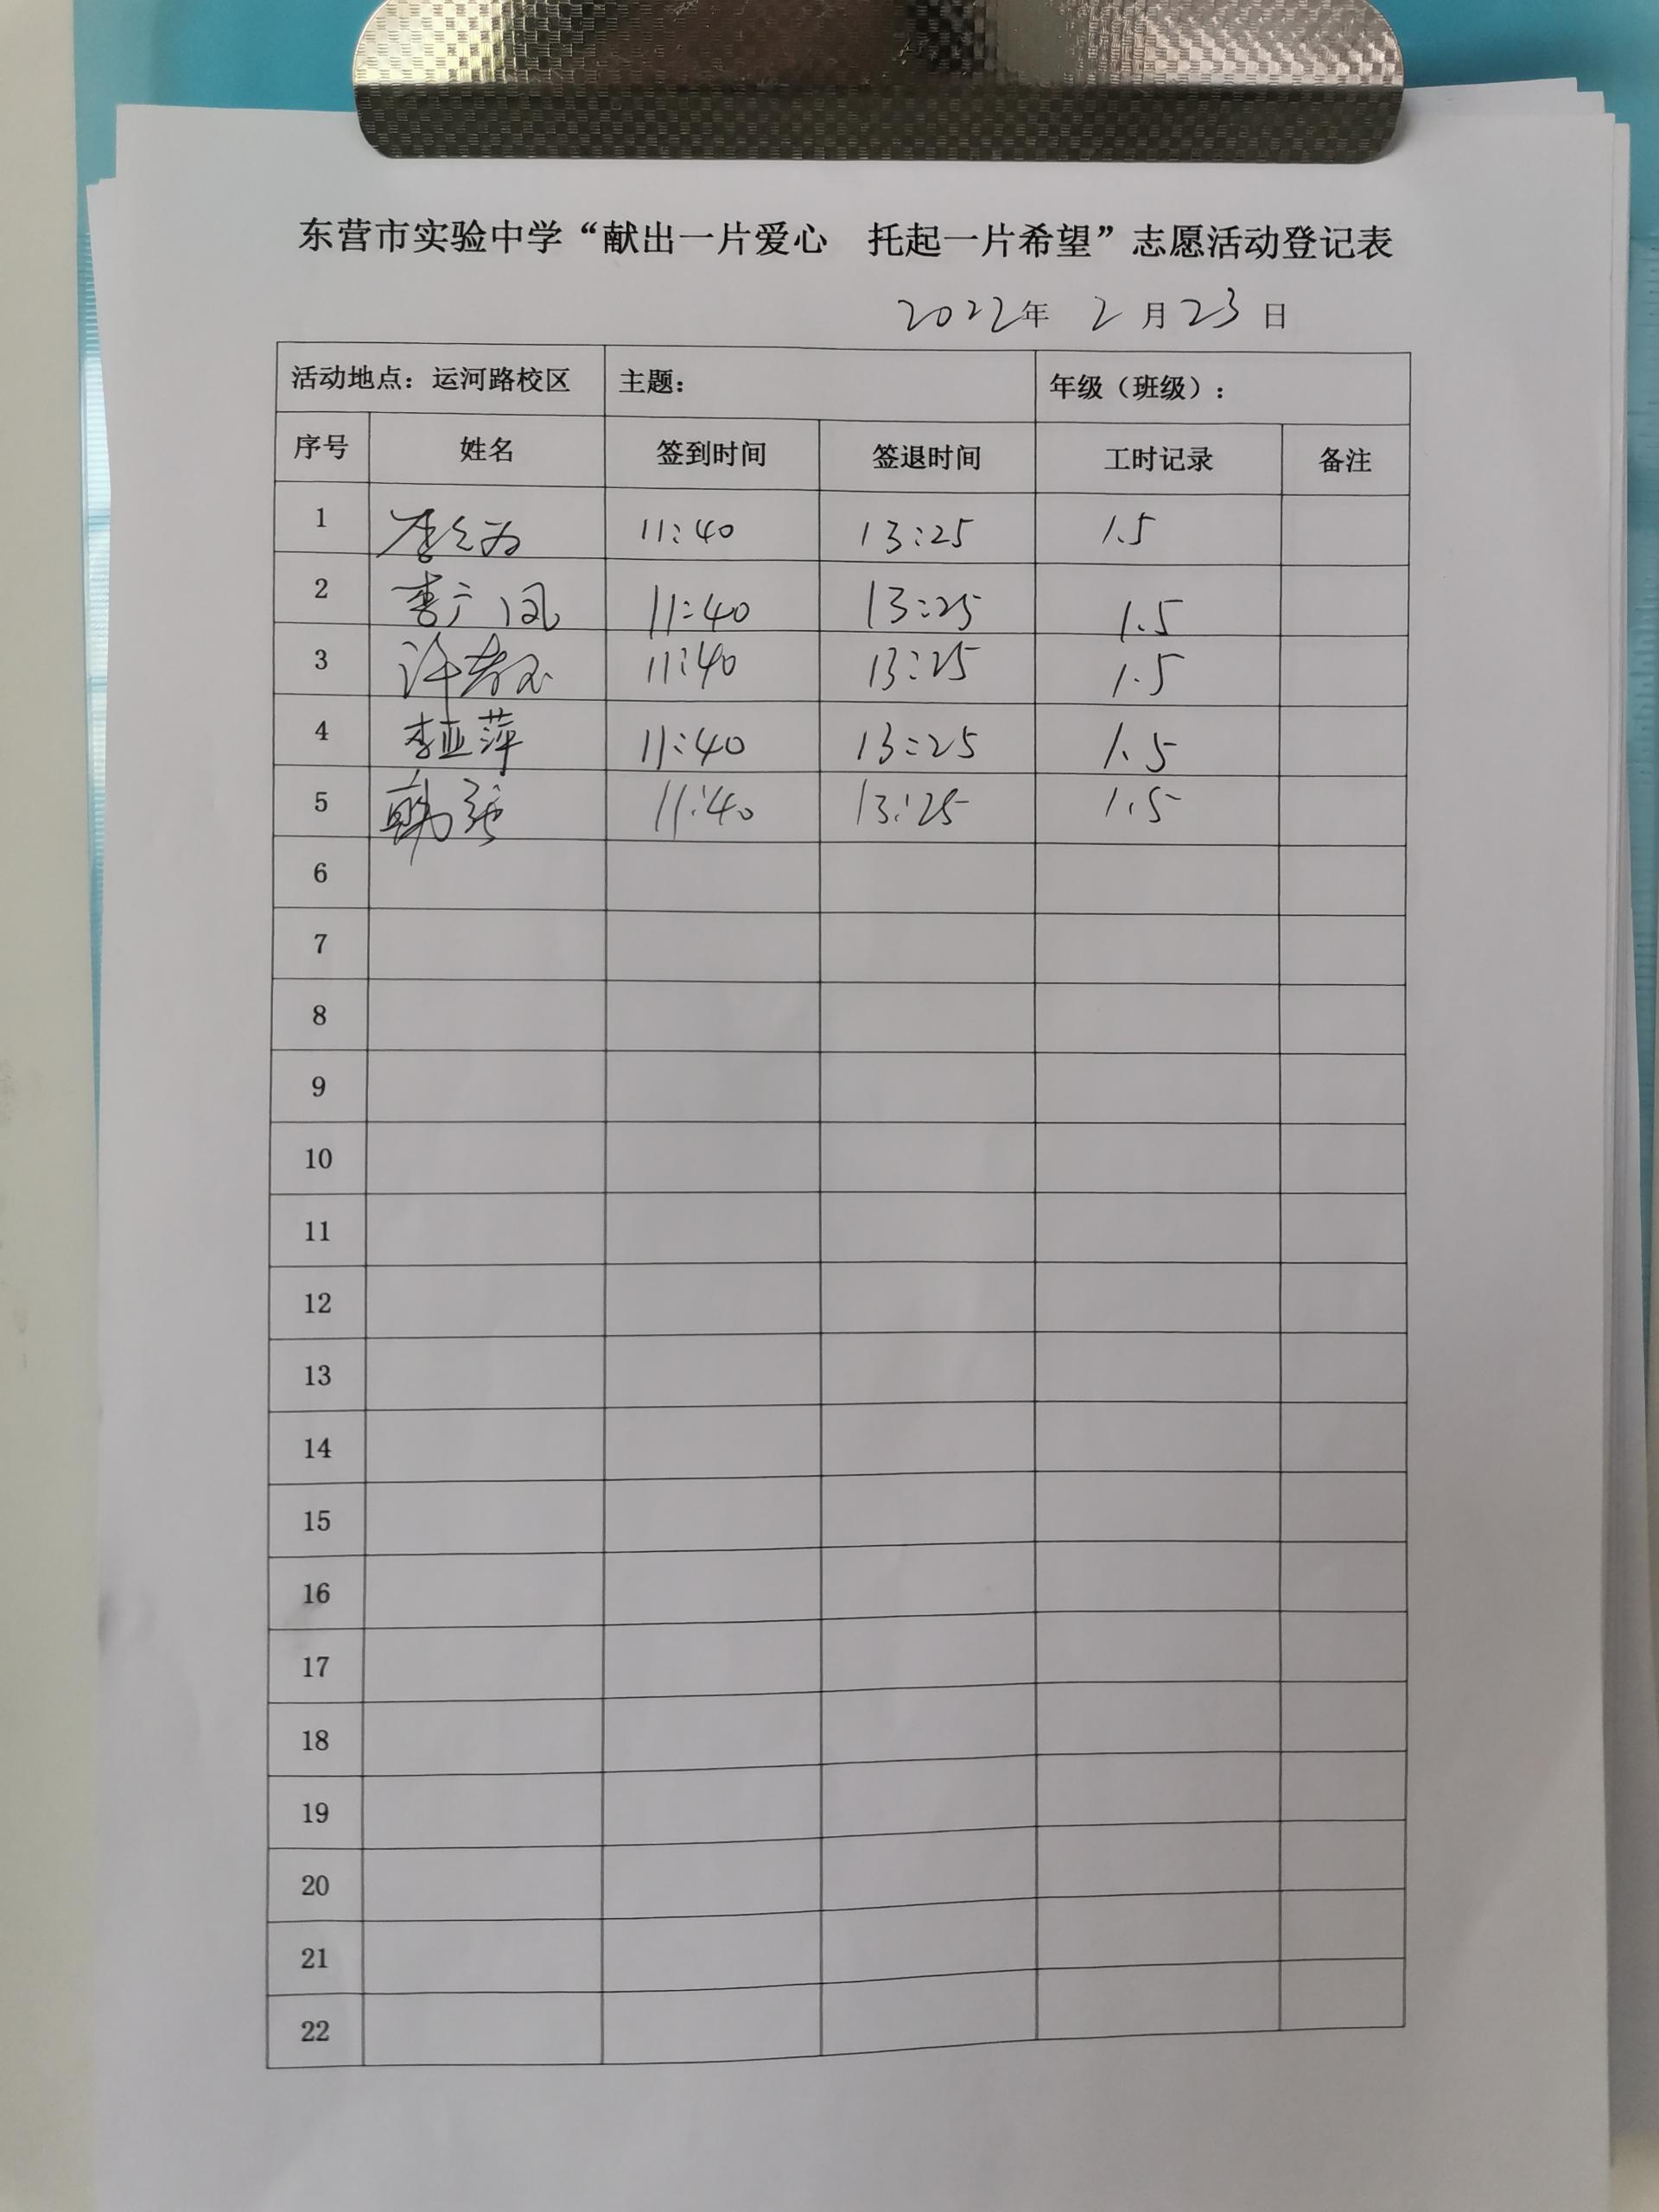 东营市实验中学“献出一片爱心　托起一片希望”志愿活动登记表
2022年 2月23日
活动地点：运河路校区 主题： 年级（班级）：
序号 姓名 签到时间 签退时间 工时记录 备注
1 11:40 13:25 1.5
2 李广凤 11:40 13:25 1.5
3 11:40 13:25 1.5
4 李亚萍 11:40 13:25 1.5
5 11:40 13:25 1.5
6
7
8
9
10
11
12
13
14
15
16
17
18
19
20
21
22